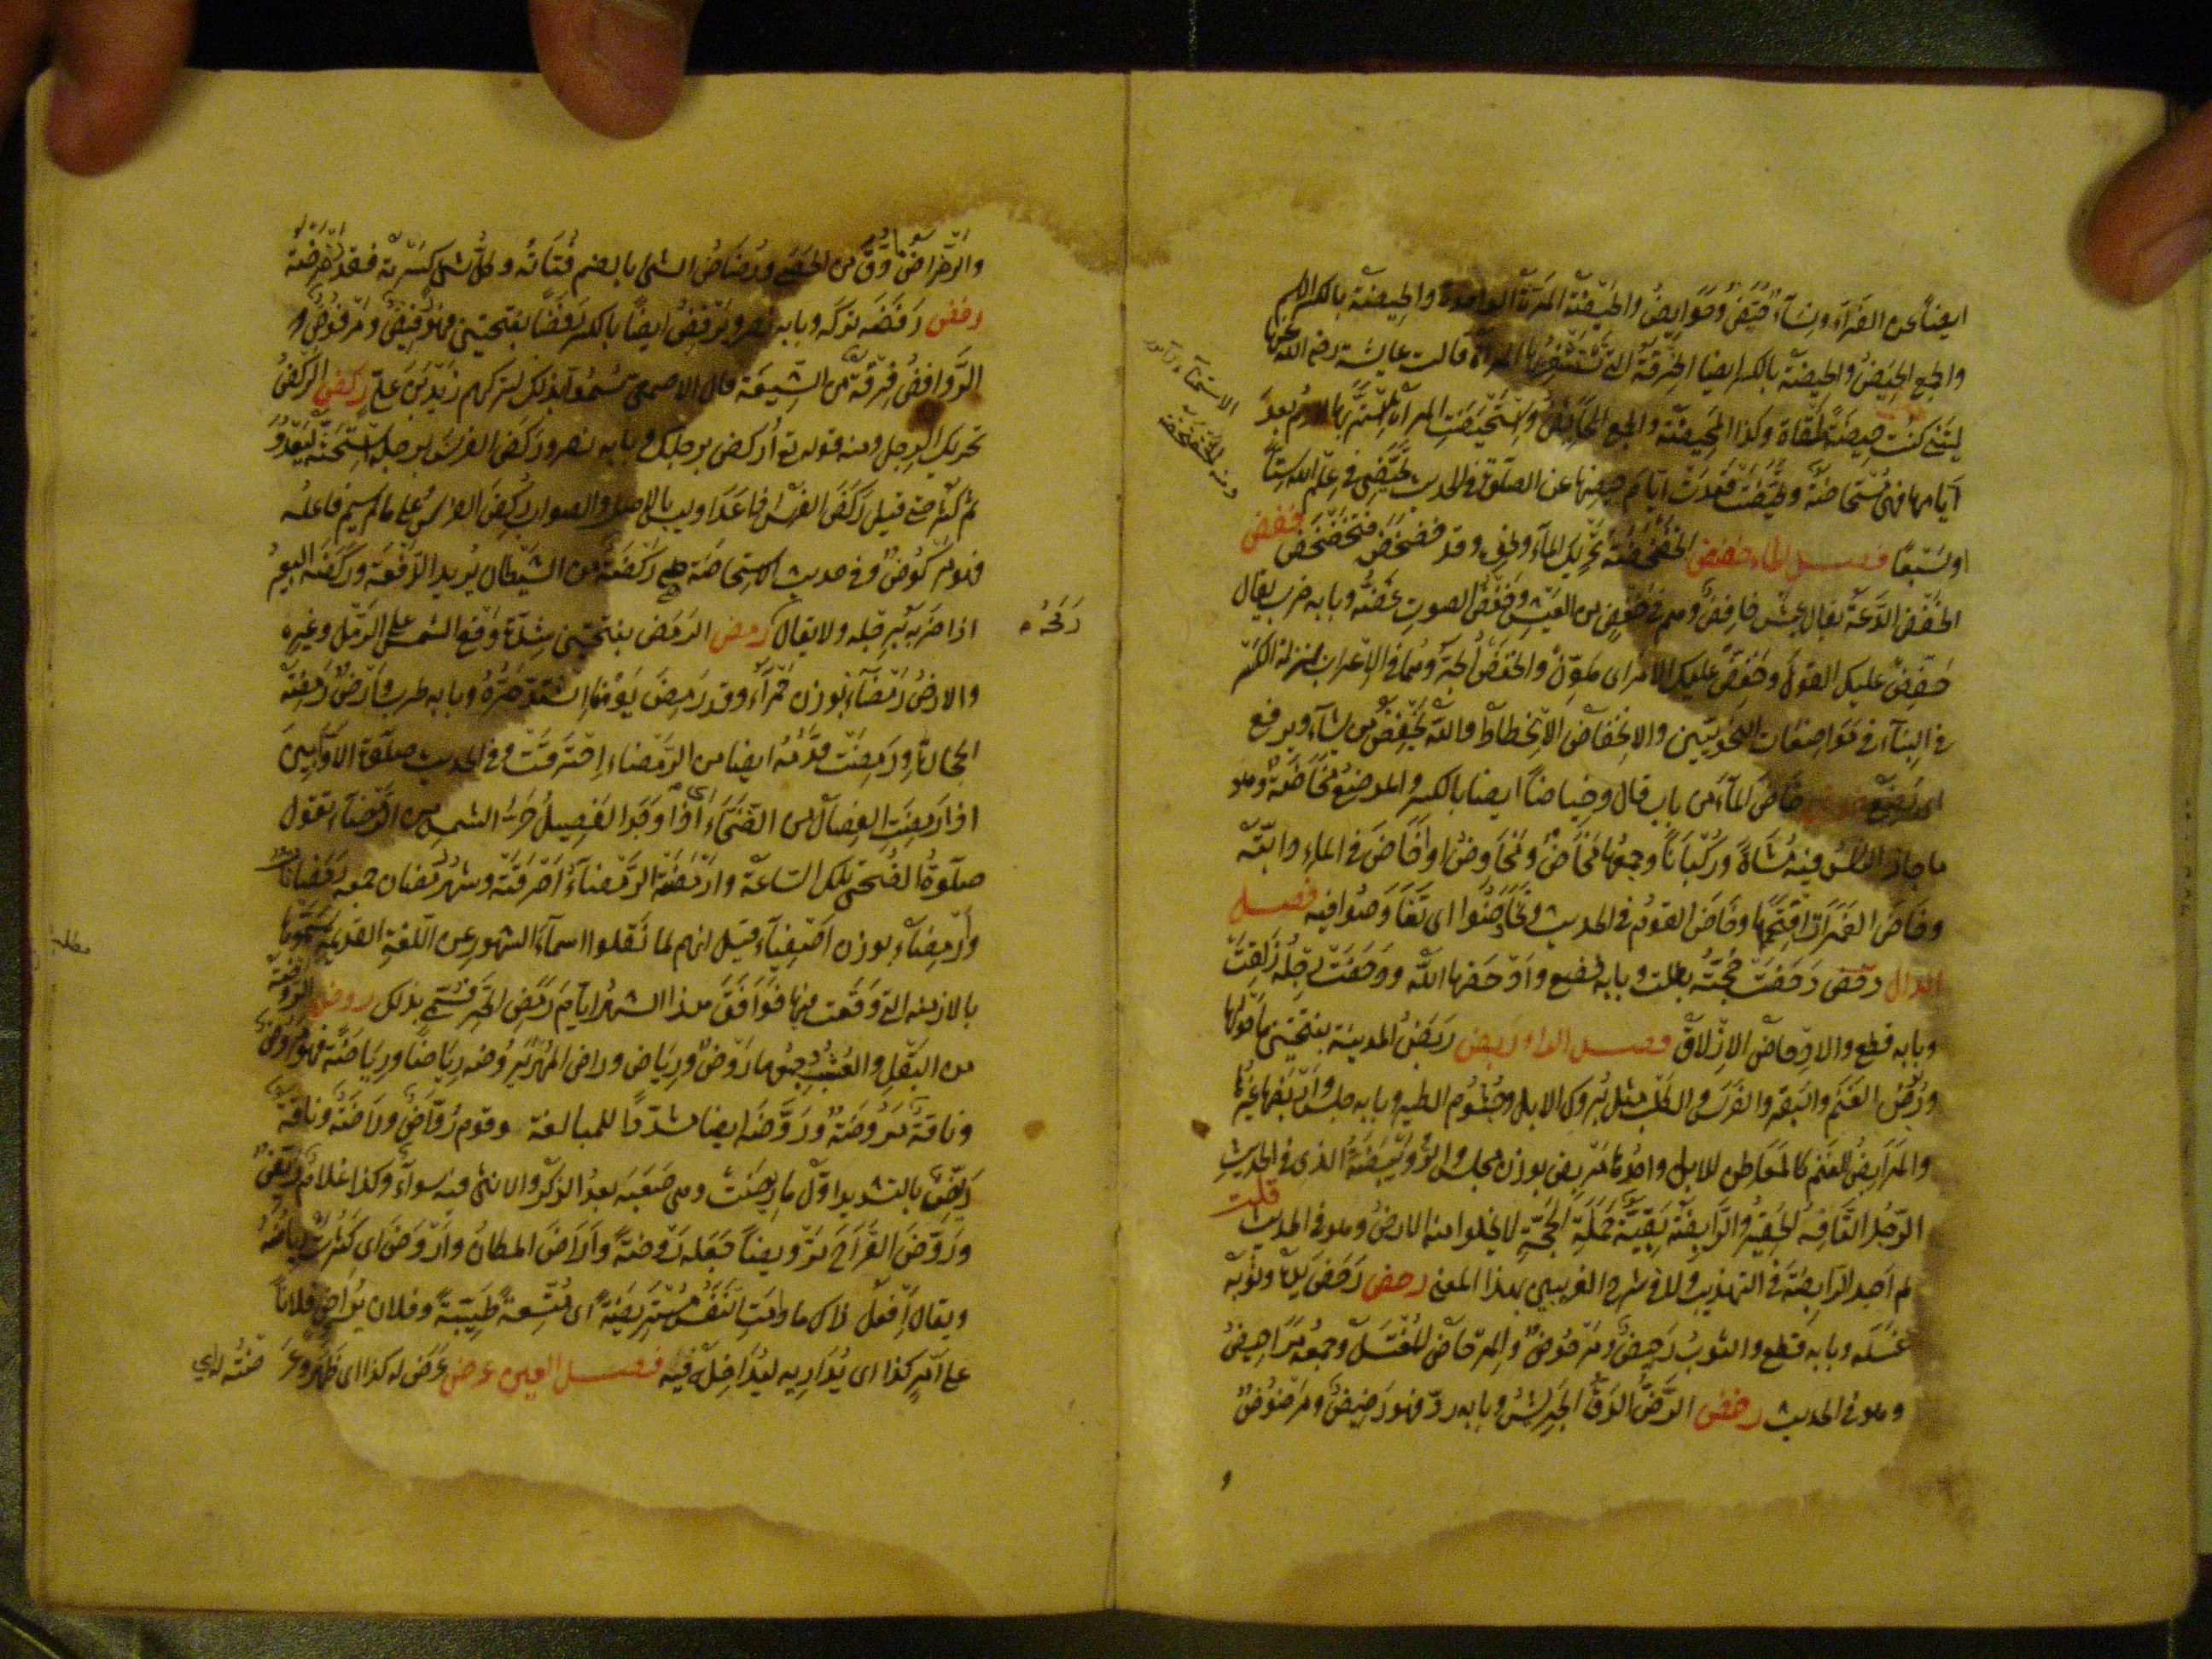 ايضا عن الفراء ونساء حُيَّض وحوايض والحَيضة المرة الواحدة والحِيضة بالكسر الاسم
والجمع الحِيَض والحيضة بالكسر ايضا الخرقة التي تستثفر بها المراة قالت عايشة رضي الله عنها
ليتني كنت حيضة ملقاة وكذا المحيضة والجمع المحائض واستحيضت المراة استمر بها الدم بعد
ايامها فهي مستحاضة وتحيضت قعدت ايام حيضها عن الصلوة وفي الحديث تحيضي في علم الله ستا
او سبعا فصــل الخاء خضض الخضخضة تحريك الماء ونحوه وقد خضخضه فتخضخض خفض
الخفض الدعة يقال عيش خافض وهم في خفض من العيش وخفض الصوت غضه وبابه ضرب يقال
خفض عليك القول وخفض عليك الامر اي هون والخفض الجر وهما في الاعراب بمنزلة الكسر
في البناء في مواصفات النحويين والانخفاض الانحطاط والله يخفض من يشاء ويرفع
اي يضع خوض خاض الماء من باب قال وخياضا ايضا بالكسر والموضع مخاضة وهو
ما جاز الناس فيه مشاة وركبانا وجمعها مخاض ومخاوض واخاض في الماء دابته
وخاض الغمرات اقتحمها وخاض القوم في الحديث وتخاوضوا اي تفاوضوا فيه فصــل
الدال دحض دحضت حجته بطلت وبابه خضع وادحضها الله ودحضت رجله زلقت
وبابه قطع والادحاض الازلاق فصــل الراء ربض ربض المدينة بفتحتين ما حولها
وربوض الغنم والبقر والفرس والكلب مثل بروك الابل وجثوم الطير وبابه جلس واربضها غيرها
والمرابض للغنم كالمعاطن للابل واحدها مربض بوزن مجلس والرويبضة الذي في الحديث
الرجل التافه الحقير والرابضة بقية حملة الحجة لا تخلوا منه الارض وهو في الحديث قلت
لم اجد الرابضة في التهذيب ولا في شرح الغريبين بهذا المعنى رحض رحض يده وثوبه
غسله وبابه قطع والثوب رحيض ومرحوض والمرحاض المغتسل وجمعه مراحيض
وهو في الحديث رضض الرض الدق الجريش وبابه رد فهو رضيض ومرضوض
و
والرضراض ما دق من الحصى ورضاض الشي بالضم فتاته وكل شي كسرته فقد رضرضته
رفض رفضه تركه وبابه نصر ويرفض ايضا بالكسر رفضا بفتحتين فهو رفيض ومرفوض و
الروافض فرقة من الشيعة قال الاصمعي سموا بذلك لتركهم زيد بن علي ركض الركض
تحريك الرجل ومنه قوله تع اركض برجلك وبابه نصر وركض الفرس برجله استحثه ليعدو
ثم كثر حتى قيل ركض الفرس اذا عدا وليس بالاصل والصواب ركض الفرس على ما لم يسم فاعله
فهو مركوض وفي حديث الاستحاضة هي ركضة من الشيطان يريد الدفعة وركضه البعير
اذا ضربه برجله ولا يقال رمحه رمض الرمض بفتحتين شدة وقع الشمس على الرمل وغيره
والارض رمضاء بوزن حمراء وقد رمض يومنا اشتد حره وبابه طرب وارض رمضة
الحجارة ورمضت قدمه ايضا من الرمضاء احترقت وفي الحديث صلوة الاوابين
اذا رمضت الفصال من الضحى اي اذا وجد الفصيل حر الشمس من الرمضاء يقول
صلوة الضحى تلك الساعة وارمضته الرمضاء احرقته وشهر رمضان جمعه رمضانات
وارمضاء بوزن اصفياء قيل انهم لما نقلوا اسماء الشهور عن اللغة القديمة سموها
بالازمنة التي وقعت فيها فوافق هذا الشهر ايام رمض الحر فسمي بذلك روض الروضة
من البقل والعشب جمعها روض ورياض وراض المهر يروضه رياضا ورياضة فهو مروض
وناقة مروضة وروضه ايضا مشددا للمبالغة وقوم رواض وراضة وناقة
ريض بالتشديد اول ما ريضت وهي صعبة بعد الذكر والانثى فيه سواء وكذا غلام ريض
وروض القراح ترويضا جعله روضة واراض المكان واروض اي كثرت رياضه
ويقال افعل ذاك ما دامت النفس مستريضة اي متسعة طيبة وفلان يراوض فلانا
على امر كذا اي يداريه ليدخله فيه فصــل العين عرض عرض له كذا اي ظهر وعرضته له اي
رمحه
مطلب